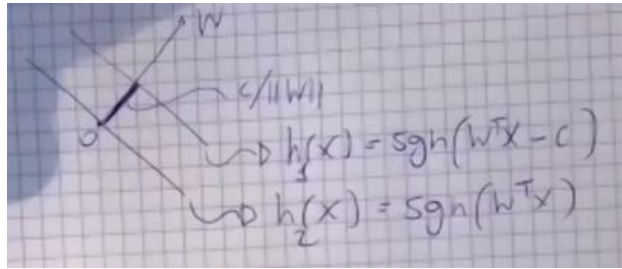 W
c/||W||
O
h₁(x) = sgn(Wᵀx - c)
h₂(x) = sgn(Wᵀx)